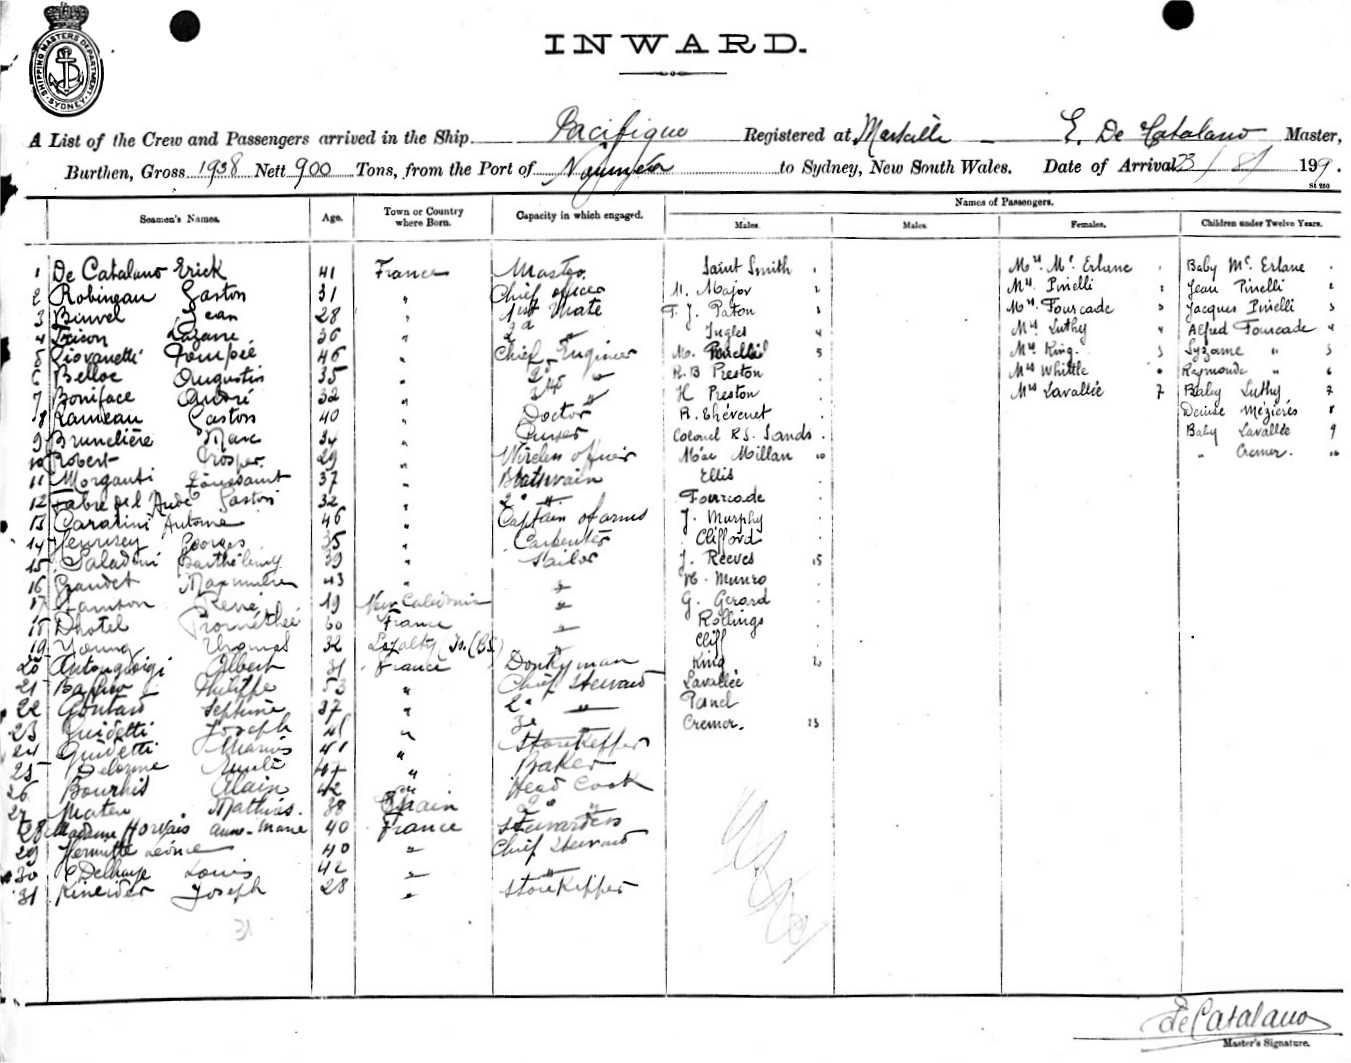 SHIPPING MASTERS DEPARTMENT SYDNEY
INWARD.
A List of the Crew and Passengers arrived in the Ship Pacifique Registered at Marseille E. De Catalano Master,
Burthen, Gross 1938 Nett 900 Tons, from the Port of to Sydney, New South Wales. Date of Arrival 23/8/ 199.
St 250
Seamen's Names. Age. Town or Country where Born. Capacity in which engaged. Names of Passengers.
Males. Males. Females. Children under Twelve Years.
1 De Catalano Erick 41 France Master Saint Smith 1 Mrs. Mc. Erlane 1 Baby Mc. Erlane 1
2 Robineau Gaston 31 " Chief officer Major 2 Mrs. Pinelli 2 Jean Pinelli 2
3 Binvel Jean 28 " 1st Mate F. J. Paton 3 Mrs. Fourcade 3 Jacques Pinelli 3
4 Lazare 36 " 2d " Ingles 4 Mrs Luthy 4 Alfred Fourcade 4
5 Giovanetti Pompée 46 " Chief Engineer M. Pinelli 5 Mrs King. 5 Suzanne " 5
6 Belloc Augustin 35 " 2d " R. B Preston Mrs Whittle 6 Raymonde " 6
7 Boniface André 32 " " H Preston Mrs Lavallée 7 Baby Luthy 7
8 Rameau Gaston 40 " Doctor R. Thévenet Denise Mézières 8
9 Brunelière Marc 34 " Purser Colonel R.S. Sands Baby Lavallée 9
10 Robert Prosper. 29 " Wireless officer Mac Millan 10 " Cremer. 10
11 Morganti Toussaint 37 " Boatswain Ellis
12 Fabre de l'Aude Gaston 32 " 2d " Fourcade
13 Caratini Antoine 46 " Captain of arms J. Murphy
14 Georges 35 " Carpenter Clifford
15 Saladini Barthélemy 39 " Sailor J. Reeves 15
16 Gaudet 43 " " Munro
17 René 19 New Caledonia " G. Gerard
18 Dhotel Prométhée 60 France " Rollings
19 Young Thomas 32 Loyalty Is. (BS) " Cliff
20 Albert 31 France Donkyman King 20
21 Philippe 53 " Chief Steward Lavallée
22 Goutard Septime 37 " 2d "
23 Guidetti Joseph " 3e " Cremer. 23
24 Guidetti Marius 41 " Storekepper
25 Delorme Emile 47 " Baker
26 Bourhis Alain 42 " Head Cook
27 Mateu Mathias. 38 Spain 2d "
28 Madame Horvais Anne-Marie 40 France Stewardess
29 Hermitte Léonce 40 " Chief Steward
30 Delhaye Louis 42 " "
31 Kineider Joseph 28 " Storekipper
31
de Catalano
Master's Signature.